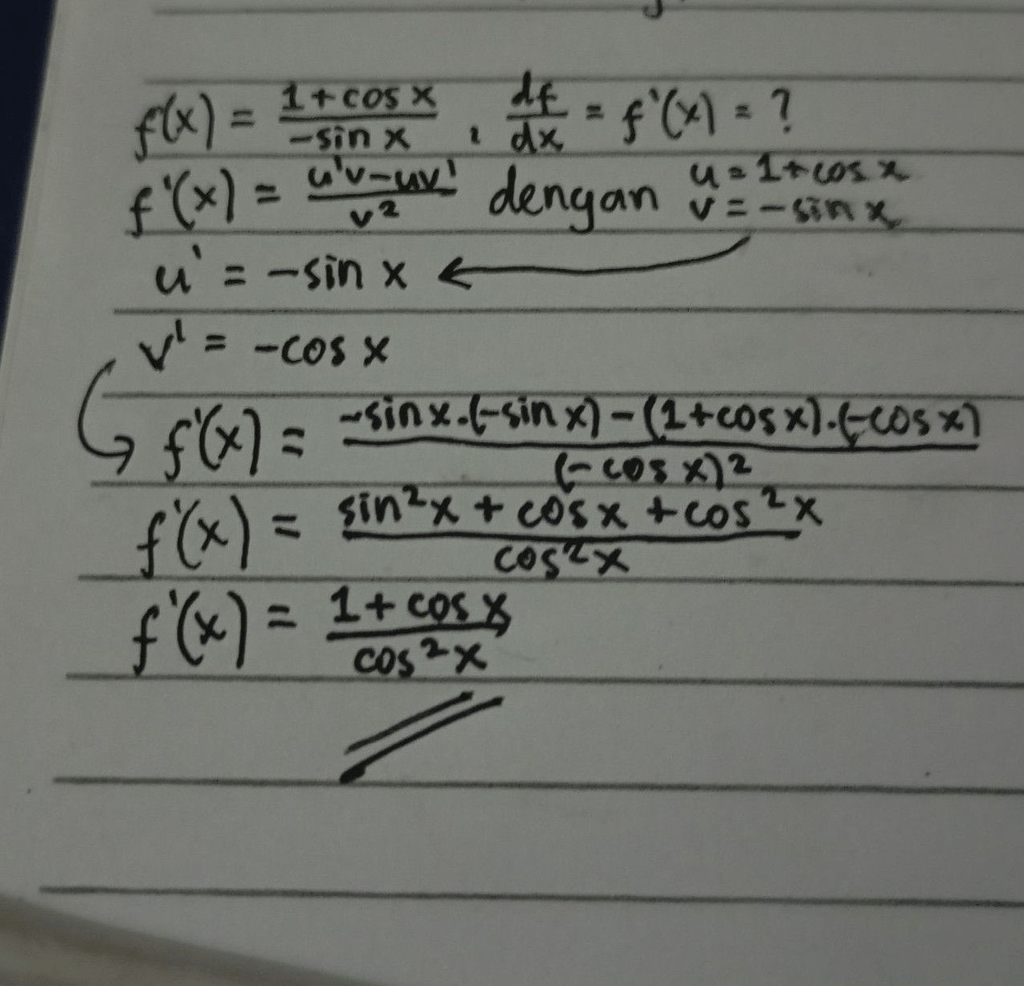 f(x) = (1+cos x)/(-sin x), df/dx = f'(x) = ?
f'(x) = (u'v-uv')/v² dengan u = 1+cos x
v = -sin x
u' = -sin x ←
v' = -cos x
→ f'(x) = (-sin x.(-sin x) - (1+cos x).(-cos x))/(-cos x)²
f'(x) = (sin²x + cos x + cos²x)/cos²x
f'(x) = (1+cos x)/cos²x